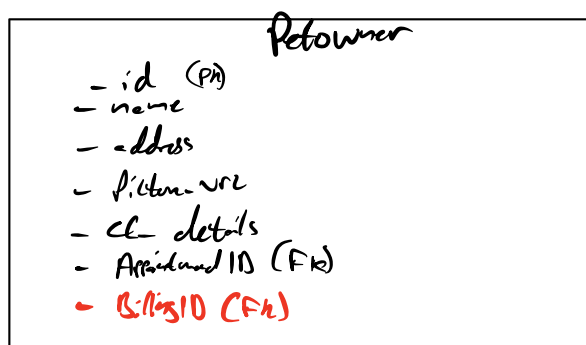 Petowner
- id (PK)
- name
- address
- Picture_url
- CC_details
- AppointmentID (FK)
- BillingID (FK)